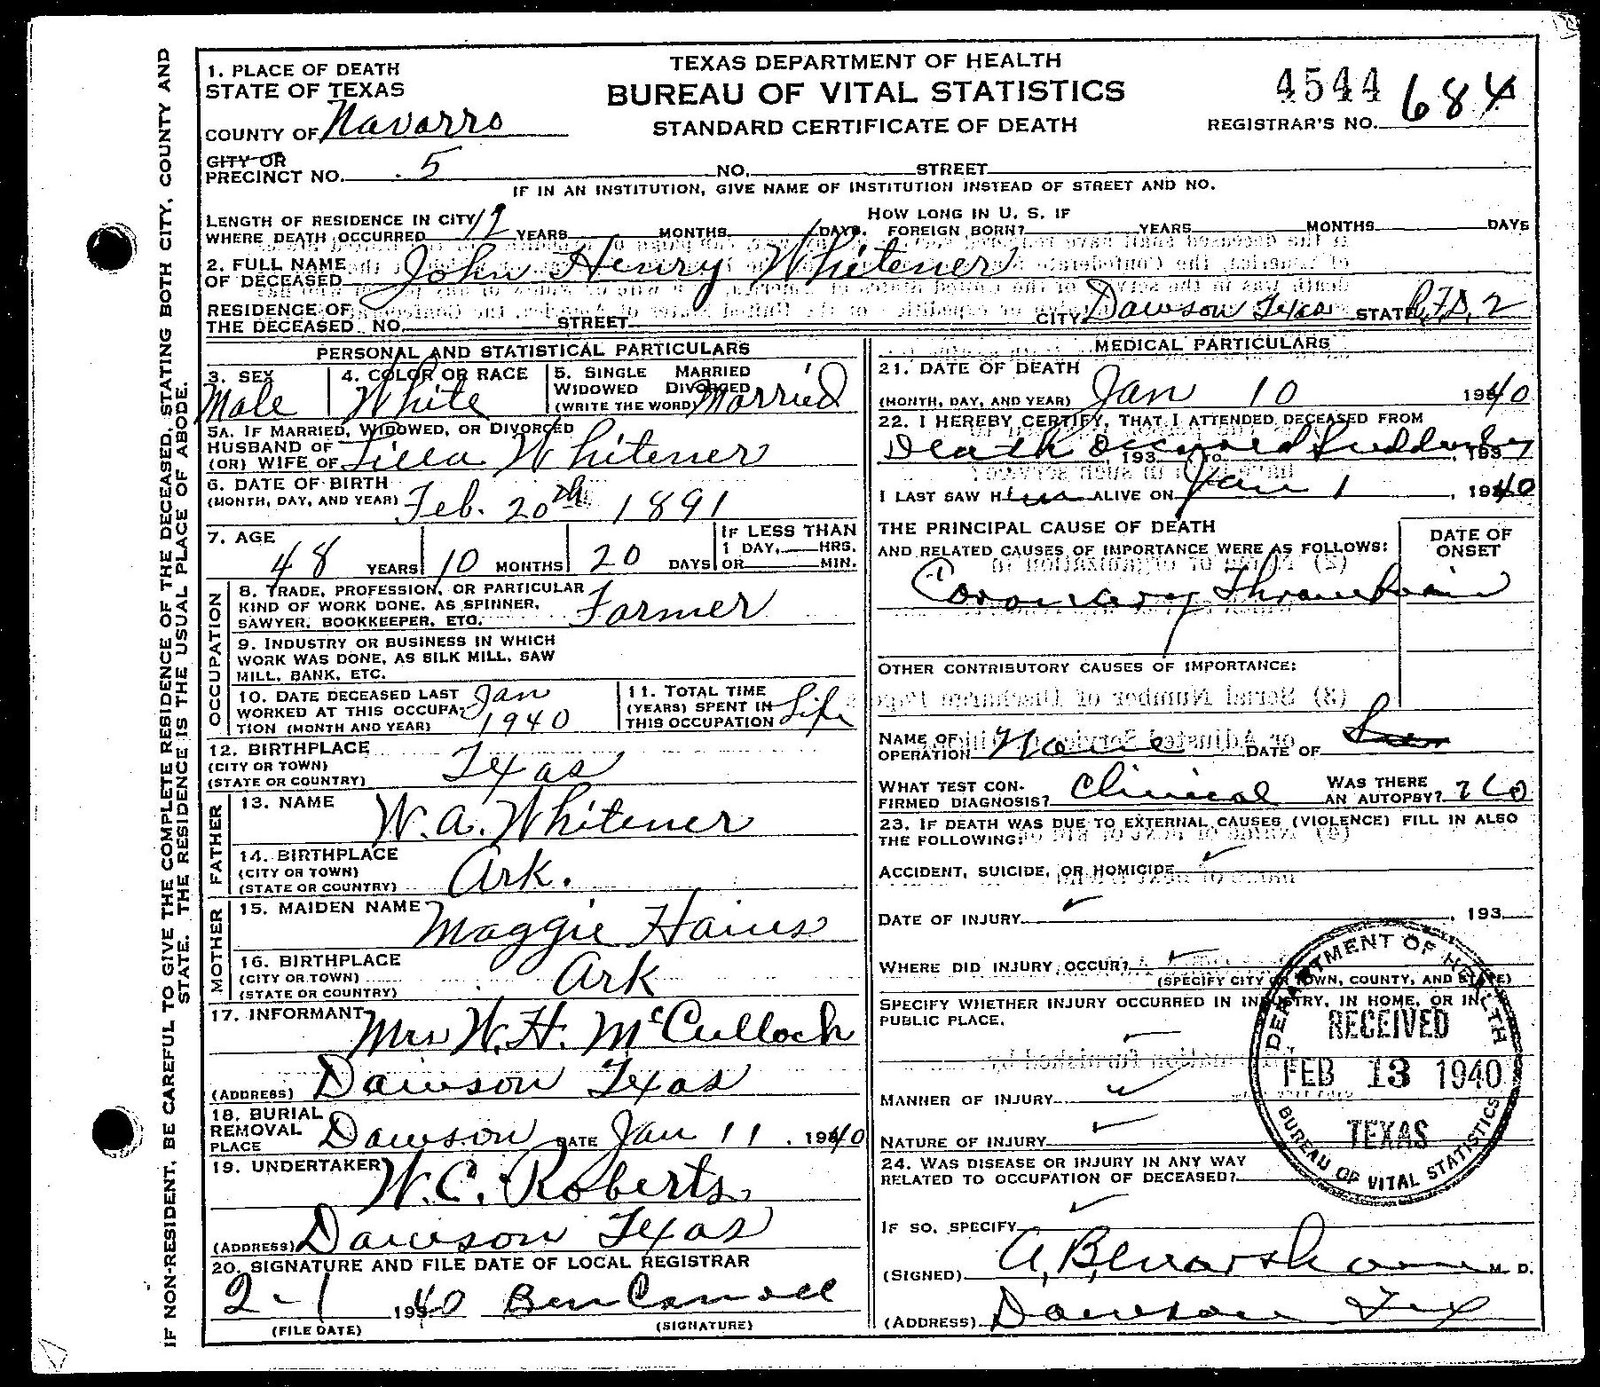 TEXAS DEPARTMENT OF HEALTH
BUREAU OF VITAL STATISTICS
STANDARD CERTIFICATE OF DEATH
4544
REGISTRAR'S NO. 684
IF NON-RESIDENT, BE CAREFUL TO GIVE THE COMPLETE RESIDENCE OF THE DECEASED, STATING BOTH CITY, COUNTY AND
STATE. THE RESIDENCE IS THE USUAL PLACE OF ABODE.
1. PLACE OF DEATH
STATE OF TEXAS
COUNTY OF Navarro
CITY OR
PRECINCT NO. 5 NO. STREET
IF IN AN INSTITUTION, GIVE NAME OF INSTITUTION INSTEAD OF STREET AND NO.
LENGTH OF RESIDENCE IN CITY HOW LONG IN U. S. IF
WHERE DEATH OCCURRED 12 YEARS MONTHS DAYS. FOREIGN BORN? YEARS MONTHS DAYS
2. FULL NAME
OF DECEASED John Henry Whitener
RESIDENCE OF
THE DECEASED NO. STREET CITY Dawson Texas STATE R.F.D. 2
PERSONAL AND STATISTICAL PARTICULARS
3. SEX Male
4. COLOR OR RACE White
5. SINGLE MARRIED
WIDOWED DIVORCED
(WRITE THE WORD) Married
5A. IF MARRIED, WIDOWED, OR DIVORCED
HUSBAND OF
(OR) WIFE OF Lilla Whitener
6. DATE OF BIRTH
(MONTH, DAY, AND YEAR) Feb. 20th 1891
7. AGE 48 YEARS 10 MONTHS 20 DAYS
IF LESS THAN
1 DAY, HRS.
OR MIN.
OCCUPATION
8. TRADE, PROFESSION, OR PARTICULAR
KIND OF WORK DONE, AS SPINNER,
SAWYER, BOOKKEEPER, ETC. Farmer
9. INDUSTRY OR BUSINESS IN WHICH
WORK WAS DONE, AS SILK MILL, SAW
MILL, BANK, ETC.
10. DATE DECEASED LAST
WORKED AT THIS OCCUPA-
TION (MONTH AND YEAR) Jan 1940
11. TOTAL TIME
(YEARS) SPENT IN
THIS OCCUPATION Life
12. BIRTHPLACE
(CITY OR TOWN)
(STATE OR COUNTRY) Texas
FATHER
13. NAME W. A. Whitener
14. BIRTHPLACE
(CITY OR TOWN)
(STATE OR COUNTRY) Ark.
MOTHER
15. MAIDEN NAME Maggie Haines
16. BIRTHPLACE
(CITY OR TOWN)
(STATE OR COUNTRY) Ark
17. INFORMANT
Mrs W. H. McCulloch
(ADDRESS) Dawson Texas
18. BURIAL
REMOVAL
PLACE Dawson DATE Jan 11, 1940
19. UNDERTAKER
W. C. Roberts
(ADDRESS) Dawson Texas
20. SIGNATURE AND FILE DATE OF LOCAL REGISTRAR
2-1 1940 Ben
(FILE DATE) (SIGNATURE)
MEDICAL PARTICULARS
21. DATE OF DEATH
(MONTH, DAY, AND YEAR) Jan 10 1940
22. I HEREBY CERTIFY, THAT I ATTENDED DECEASED FROM
Death Occurred Suddenly
, 193 TO , 193
I LAST SAW Him ALIVE ON Jan 1, 1940
THE PRINCIPAL CAUSE OF DEATH
AND RELATED CAUSES OF IMPORTANCE WERE AS FOLLOWS:
DATE OF
ONSET
Coronary Thrombosis
OTHER CONTRIBUTORY CAUSES OF IMPORTANCE:
NAME OF
OPERATION None DATE OF
WHAT TEST CON-
FIRMED DIAGNOSIS? Clinical
WAS THERE
AN AUTOPSY? no
23. IF DEATH WAS DUE TO EXTERNAL CAUSES (VIOLENCE) FILL IN ALSO
THE FOLLOWING:
ACCIDENT, SUICIDE, OR HOMICIDE ✓
DATE OF INJURY ✓ , 193
WHERE DID INJURY OCCUR? ✓
(SPECIFY CITY OR TOWN, COUNTY, AND STATE)
SPECIFY WHETHER INJURY OCCURRED IN INDUSTRY, IN HOME, OR IN
PUBLIC PLACE.
✓
MANNER OF INJURY ✓
NATURE OF INJURY ✓
24. WAS DISEASE OR INJURY IN ANY WAY
RELATED TO OCCUPATION OF DECEASED?
IF SO, SPECIFY ✓
(SIGNED) M. D.
(ADDRESS) Dawson Tex
DEPARTMENT OF HEALTH
RECEIVED
FEB 13 1940
TEXAS
BUREAU OF VITAL STATISTICS